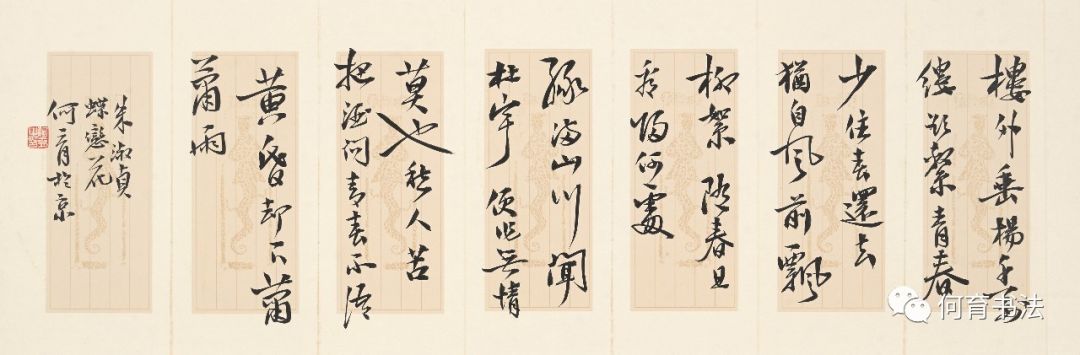 樓外垂楊千万
缕欲繫青春
少住春還去
猶自風前飄
柳絮隨春且
看歸何處
緑滿山川聞
杜宇便作無情
莫也愁人苦
把酒问春春不語
黄昏却下蕭
蕭雨
朱淑貞
蝶戀花
何育於京
何育书法